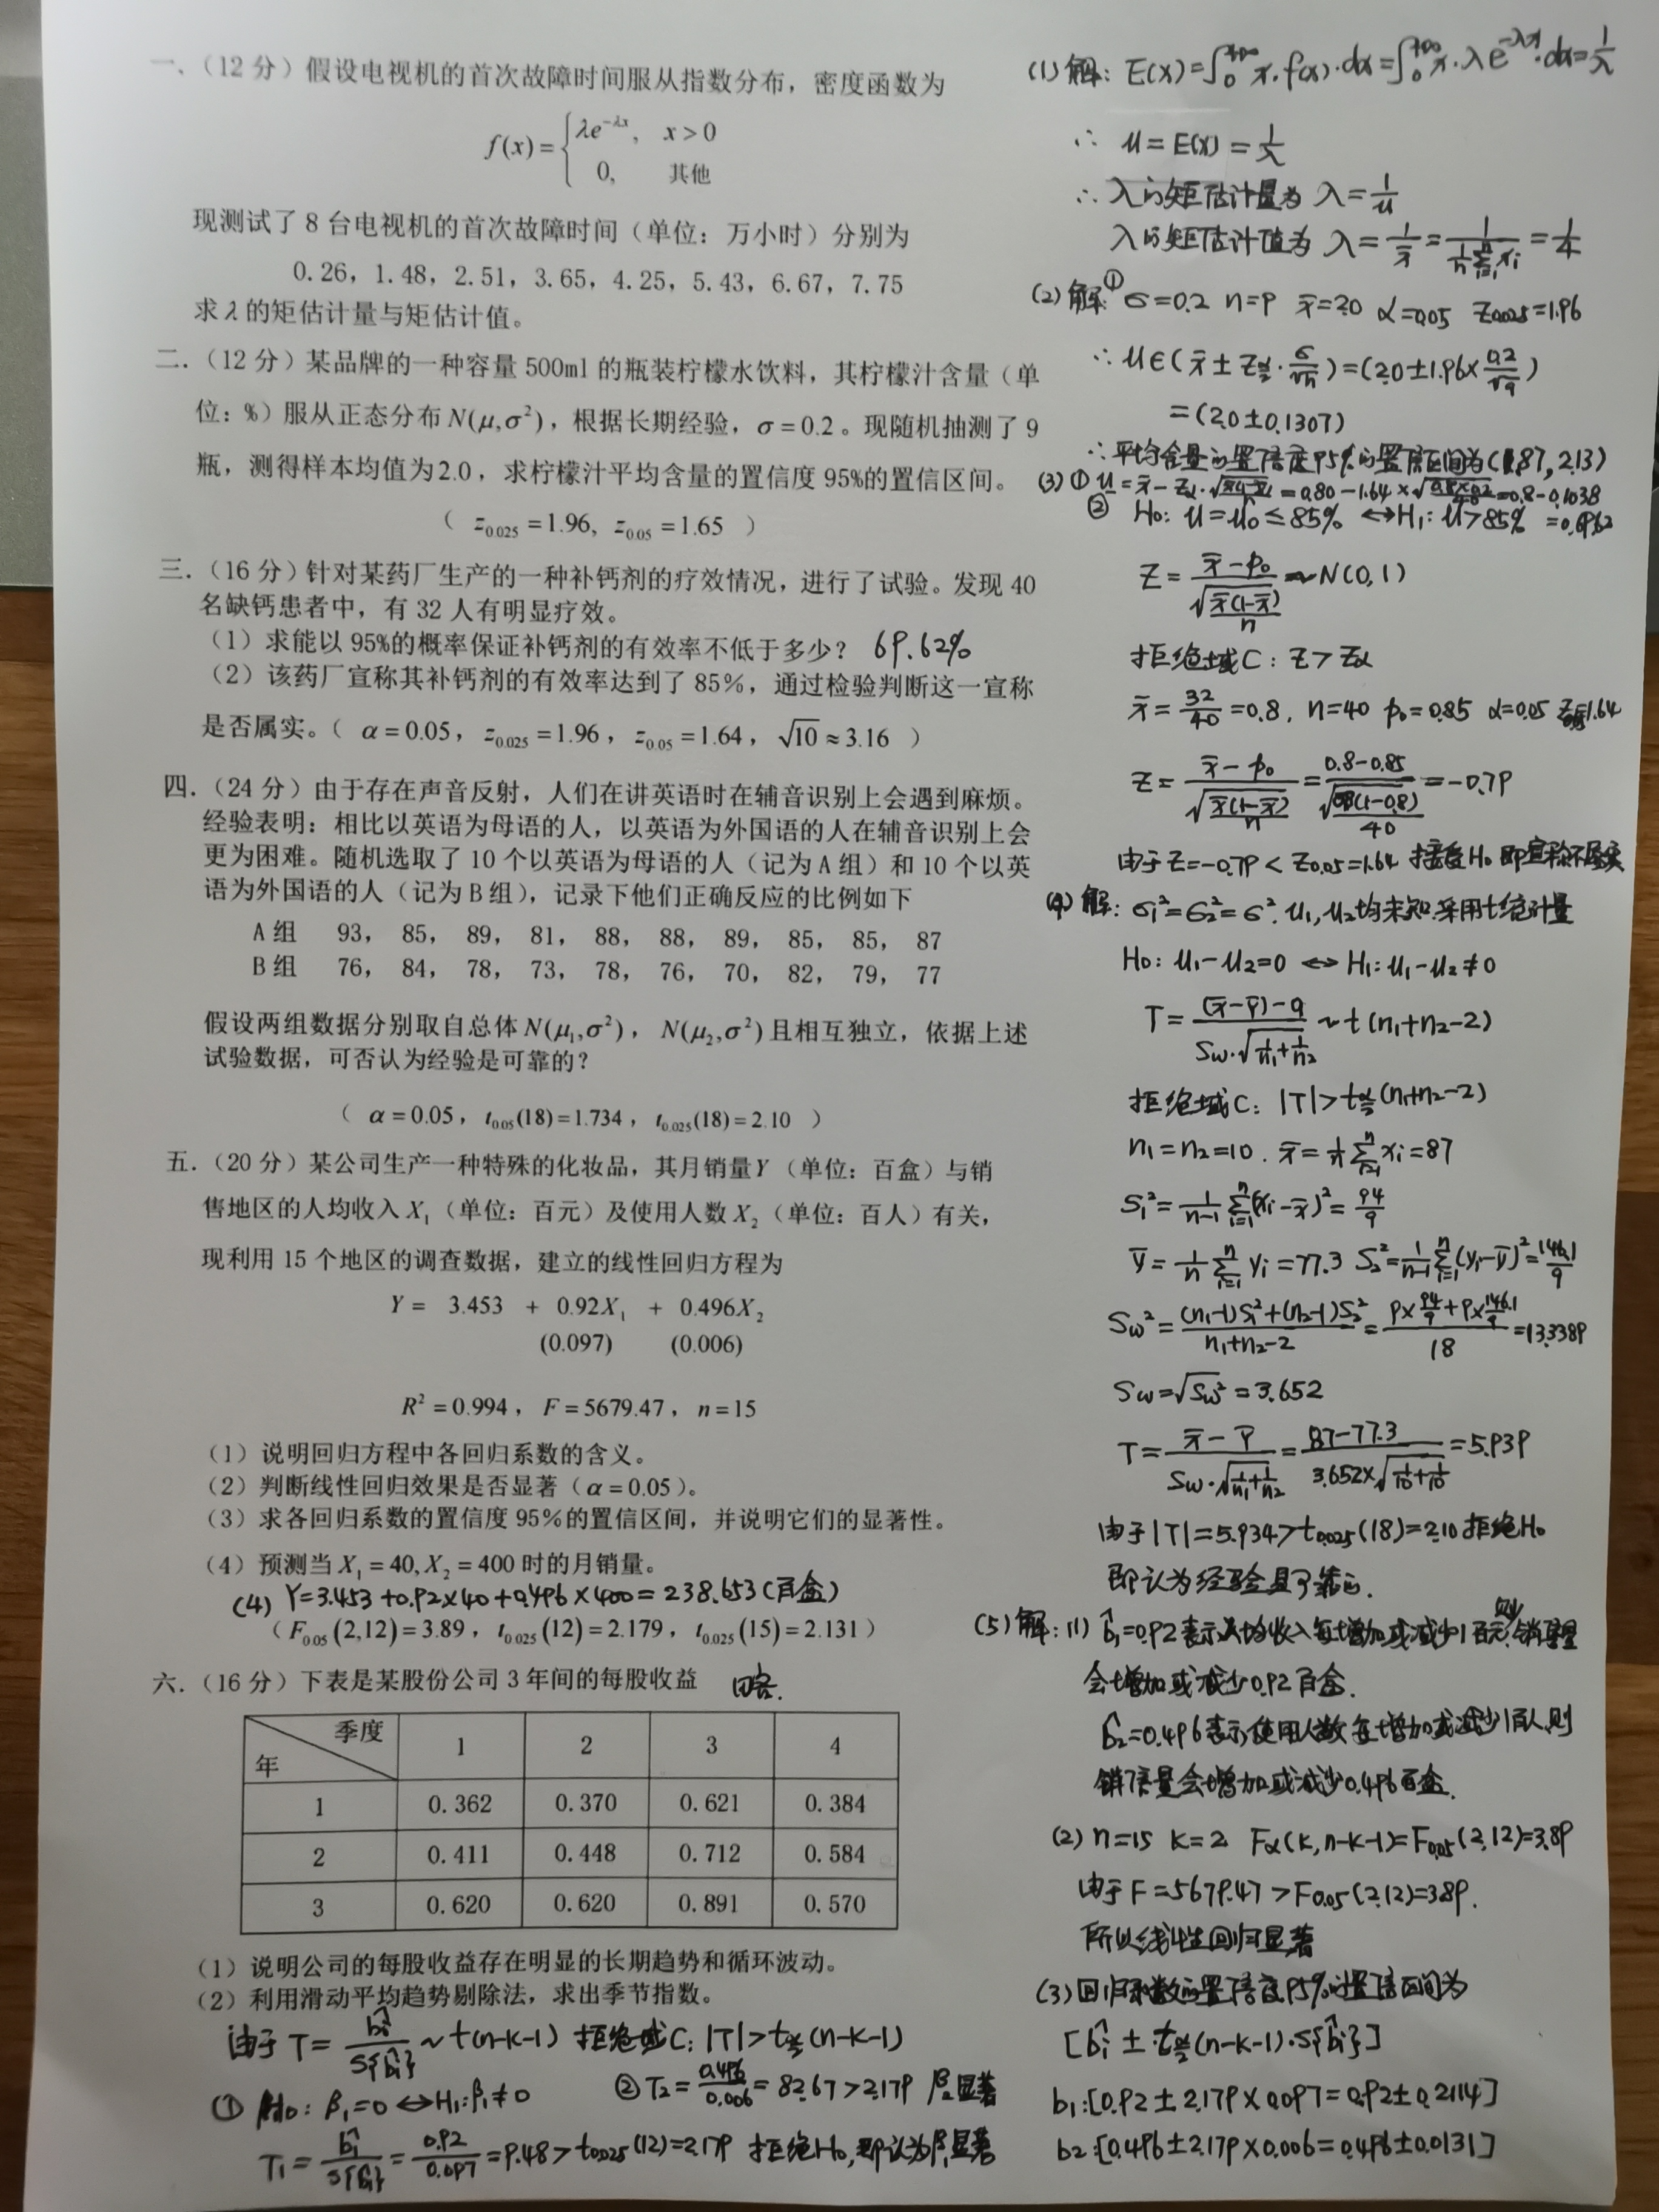 一、（12分）假设电视机的首次故障时间服从指数分布，密度函数为
f(x)={λe^{-λx}, x>0
0, 其他
现测试了8台电视机的首次故障时间（单位：万小时）分别为
0.26，1.48，2.51，3.65，4.25，5.43，6.67，7.75
求λ的矩估计量与矩估计值。
二．（12分）某品牌的一种容量500ml的瓶装柠檬水饮料，其柠檬汁含量（单
位：%）服从正态分布N(μ,σ²)，根据长期经验，σ=0.2。现随机抽测了9
瓶，测得样本均值为2.0，求柠檬汁平均含量的置信度95%的置信区间。
（ z_{0.025}=1.96, z_{0.05}=1.65 ）
三．（16分）针对某药厂生产的一种补钙剂的疗效情况，进行了试验。发现40
名缺钙患者中，有32人有明显疗效。
（1）求能以95%的概率保证补钙剂的有效率不低于多少？ 69.62%
（2）该药厂宣称其补钙剂的有效率达到了85%，通过检验判断这一宣称
是否属实。（ α=0.05，z_{0.025}=1.96，z_{0.05}=1.64，√10≈3.16 ）
四．（24分）由于存在声音反射，人们在讲英语时在辅音识别上会遇到麻烦。
经验表明：相比以英语为母语的人，以英语为外国语的人在辅音识别上会
更为困难。随机选取了10个以英语为母语的人（记为A组）和10个以英
语为外国语的人（记为B组），记录下他们正确反应的比例如下
A组 93， 85， 89， 81， 88， 88， 89， 85， 85， 87
B组 76， 84， 78， 73， 78， 76， 70， 82， 79， 77
假设两组数据分别取自总体N(μ₁,σ²)，N(μ₂,σ²)且相互独立，依据上述
试验数据，可否认为经验是可靠的？
（ α=0.05，t_{0.05}(18)=1.734，t_{0.025}(18)=2.10 ）
五．（20分）某公司生产一种特殊的化妆品，其月销量Y（单位：百盒）与销
售地区的人均收入X₁（单位：百元）及使用人数X₂（单位：百人）有关，
现利用15个地区的调查数据，建立的线性回归方程为
Y= 3.453 + 0.92X₁ + 0.496X₂
(0.097) (0.006)
R²=0.994，F=5679.47，n=15
（1）说明回归方程中各回归系数的含义。
（2）判断线性回归效果是否显著（α=0.05）。
（3）求各回归系数的置信度95%的置信区间，并说明它们的显著性。
（4）预测当X₁=40,X₂=400时的月销量。
(4) Y=3.453+0.92×40+0.496×400=238.653(百盒)
（F_{0.05}(2,12)=3.89，t_{0.025}(12)=2.179，t_{0.025}(15)=2.131）
六．（16分）下表是某股份公司3年间的每股收益 略.
季度
年 1 2 3 4
1 0.362 0.370 0.621 0.384
2 0.411 0.448 0.712 0.584
3 0.620 0.620 0.891 0.570
（1）说明公司的每股收益存在明显的长期趋势和循环波动。
（2）利用滑动平均趋势剔除法，求出季节指数。
由于 T=b̂i/S{b̂i}~t(n-k-1) 拒绝域C: |T|>t_{α/2}(n-k-1)
① H₀: β₁=0 ↔ H₁: β₁≠0 ②T₂=0.496/0.006=82.67>2.179 β₂显著
T₁=b̂₁/S{b̂₁}=0.92/0.097=9.48>t_{0.025}(12)=2.179 拒绝H₀,即认为β₁显著
(1)解: E(X)=∫₀^{+∞}x·f(x)·dx=∫₀^{+∞}x·λe^{-λx}·dx=1/λ
∴ μ=E(X)=1/λ
∴ λ的矩估计量为 λ=1/μ
λ的矩估计值为 λ=1/x̄=1/(1/n Σ_{i=1}^{n}xi)=1/4
(2)解:① σ=0.2 n=9 x̄=2.0 α=0.05 Z_{0.025}=1.96
∴ μ∈(x̄±Z_{α/2}·σ/√n)=(2.0±1.96×0.2/√9)
=(2.0±0.1307)
∴平均含量的置信度95%的置信区间为(1.87,2.13)
(3)① μ=x̄-Zα·√(x̄(1-x̄)/n)=0.80-1.64×√(0.8×0.2/40)=0.8-0.1038
② H₀: μ=μ₀≤85% ↔ H₁: μ>85% =0.6962
Z=(x̄-p₀)/√(x̄(1-x̄)/n)~N(0,1)
拒绝域C: Z>Zα
x̄=32/40=0.8, n=40 p₀=0.85 α=0.05 Z_{0.05}=1.64
Z=(x̄-p₀)/√(x̄(1-x̄)/n)=(0.8-0.85)/√(0.8(1-0.8)/40)=-0.79
由于Z=-0.79<Z_{0.05}=1.64 接受H₀ 即宣称不属实
(4)解: σ₁²=σ₂²=σ². μ₁,μ₂均未知.采用t统计量
H₀: μ₁-μ₂=0 ↔ H₁: μ₁-μ₂≠0
T=((x̄-ȳ)-0)/(Sw·√(1/n₁+1/n₂))~t(n₁+n₂-2)
拒绝域C: |T|>t_{α/2}(n₁+n₂-2)
n₁=n₂=10. x̄=1/n Σ_{i=1}^{n}xi=87
S₁²=1/(n-1) Σ_{i=1}^{n}(xi-x̄)²=94/9
ȳ=1/n Σ_{i=1}^{n}yi=77.3 S₂²=1/(n-1) Σ_{i=1}^{n}(yi-ȳ)²=146.1/9
Sw²=((n₁-1)S₁²+(n₂-1)S₂²)/(n₁+n₂-2)=(9×94/9+9×146.1/9)/18=13.3389
Sw=√Sw²=3.652
T=(x̄-ȳ)/(Sw·√(1/n₁+1/n₂))=(87-77.3)/(3.652×√(1/10+1/10))=5.939
由于|T|=5.934>t_{0.025}(18)=2.10 拒绝H₀
即认为经验是可靠的.
(5)解: (1) b̂₁=0.92表示人均收入每增加或减少1百元,则销售量
会增加或减少0.92百盒.
b̂₂=0.496表示使用人数每增加或减少1百人,则
销售量会增加或减少0.496百盒.
(2) n=15 k=2 Fα(k,n-k-1)=F_{0.05}(2,12)=3.89
由于F=5679.47>F_{0.05}(2,12)=3.89.
所以线性回归显著
(3)回归系数的置信度95%的置信区间为
[b̂i±t_{α/2}(n-k-1)·S{b̂i}]
b₁:[0.92±2.179×0.097=0.92±0.2114]
b₂:[0.496±2.179×0.006=0.496±0.0131]